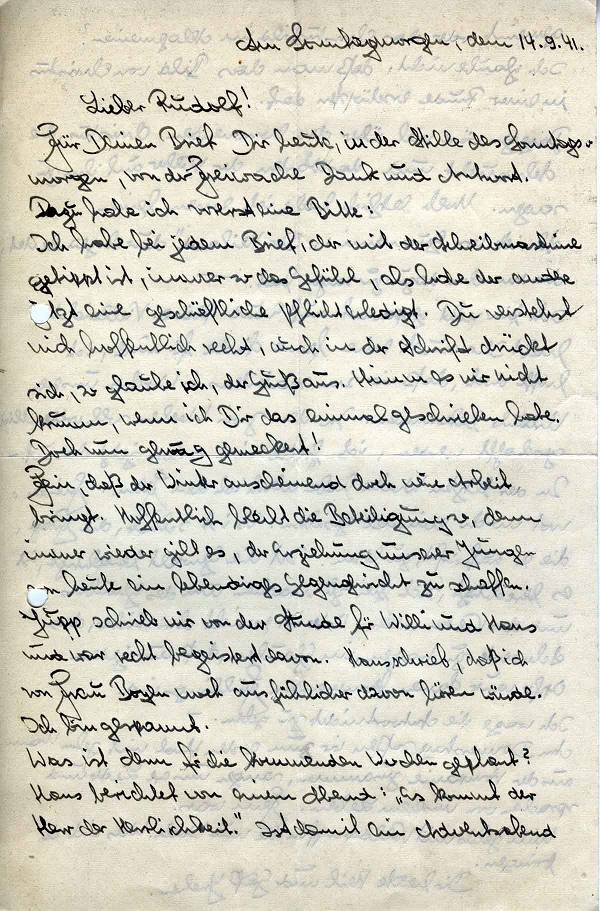 Am Sonntagmorgen, dem 14.9.41.
Lieber Rudolf!
Für Deinen Brief Dir heute, in der Stille des Sonntag-
morgen, von der Freiwache Dank und Antwort.
Dazu habe ich vorerst eine Bitte:
Ich habe bei jedem Brief, der mit der Schreibmaschine
getippt ist, immer so das Gefühl, als habe der andre
jetzt eine geschäftliche Pflicht erledigt. Du verstehst
mich hoffentlich recht, auch in der Schrift drückt
sich, so glaube ich, der Gruß aus. Nimm es mir nicht
krumm, wenn ich Dir das einmal geschrieben habe.
Doch nun genug gemeckert!
Fein, daß der Winter anscheinend doch neue Arbeit
bringt. Hoffentlich bleibt die Beteiligung so, denn
immer wieder gilt es, der Erziehung unserer Jungen
von heute ein lebendiges Gegengewicht zu schaffen.
Jupp schrieb mir von der Stunde für Willi und Hans
und war recht begeistert davon. Hans schrieb, daß ich
von Frau noch ausführlicher davon hören würde.
Ich bin gespannt.
Was ist denn für die kommenden Wochen geplant?
Hans berichtet von einem Abend: „Es kommt der
Herr der Herrlichkeit." Ist damit ein Adventsabend